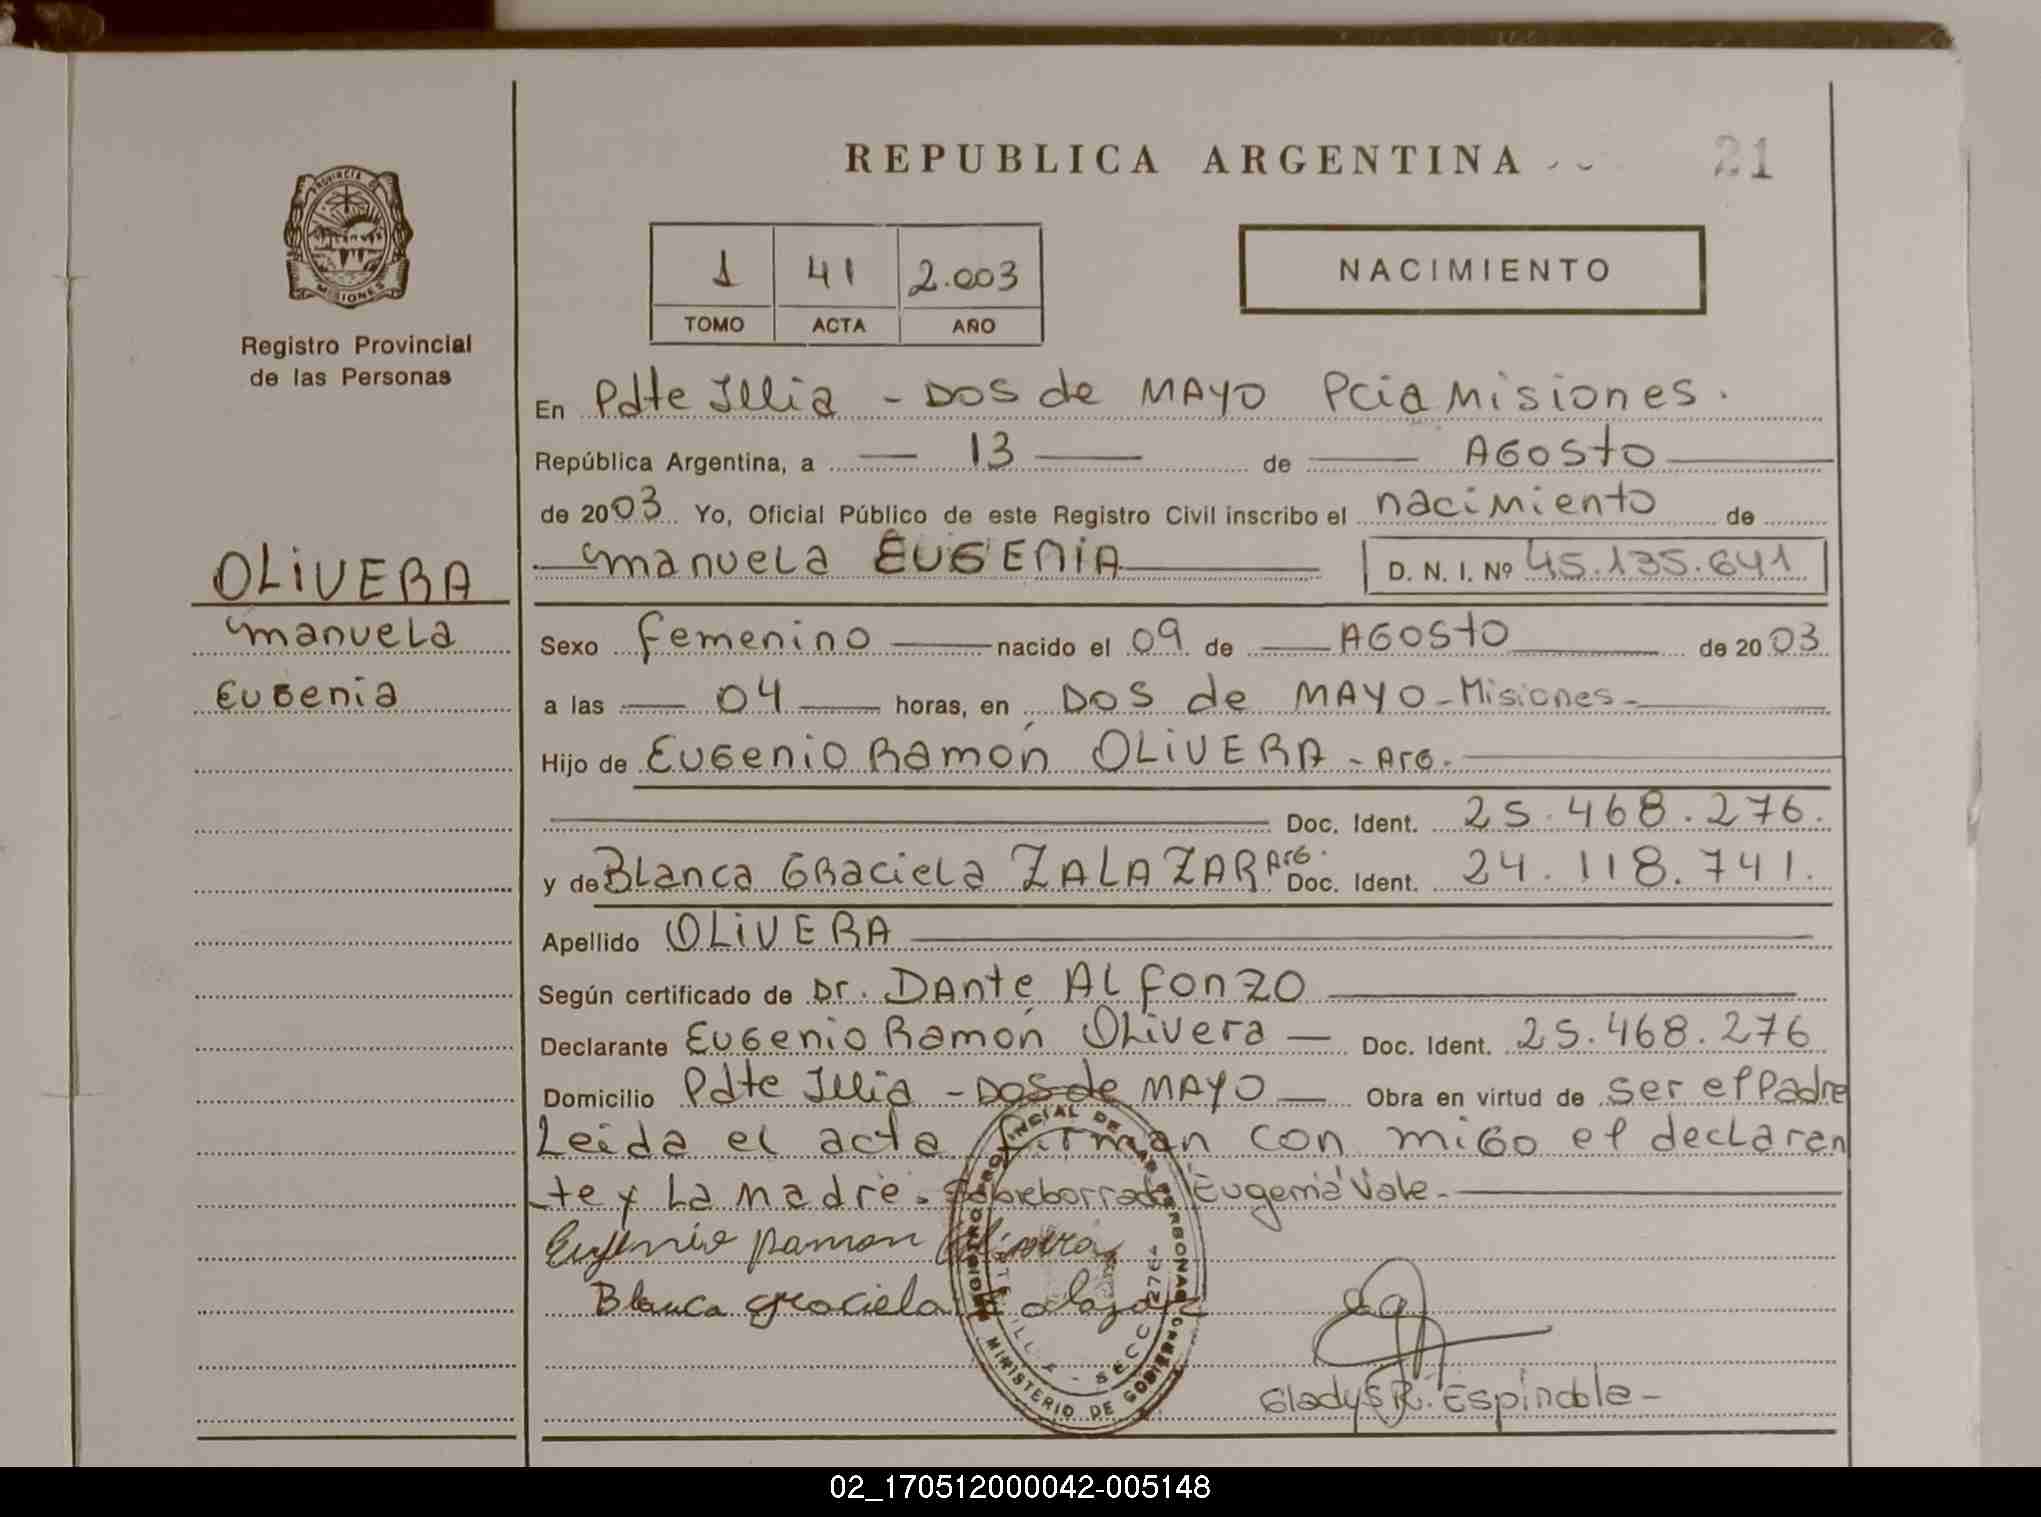 REPUBLICA ARGENTINA
21
PROVINCIA DE
MISIONES
Registro Provincial
de las Personas
1 41 2.003
TOMO ACTA AÑO
NACIMIENTO
En Pdte Illia - DOS de MAYO Pcia Misiones.
República Argentina, a 13 de AGOSTO
de 2003 Yo, Oficial Público de este Registro Civil inscribo el nacimiento de
manuela EUGENIA D. N. I. Nº 45.135.641
OLIVERA
manuela
Eugenia
Sexo femenino nacido el 09 de AGOSTO de 2003
a las 04 horas, en DOS de MAYO - Misiones -
Hijo de Eugenio Ramón OLIVERA - Arg.
Doc. Ident. 25.468.276.
y de Blanca Graciela ZALAZAR Arg. Doc. Ident. 24.118.741.
Apellido OLIVERA
Según certificado de Dr. Dante ALfonzo
Declarante Eugenio Ramón Olivera Doc. Ident. 25.468.276
Domicilio Pdte Illia - DOS de MAYO Obra en virtud de ser el Padre
Leida el acta firman con migo el declaren
te y La madre. Sobreborrado "Eugenia" Vale.
Eugenio Ramon Olivera
Blanca graciela Zalazar
REGISTRO PROVINCIAL DE LAS PERSONAS
MINISTERIO DE GOBIERNO
SECC 2764
Gladys R. Espindola -
02_170512000042-005148